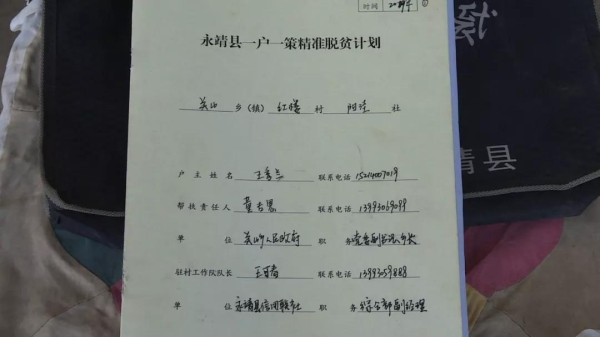 时间
永靖县一户一策精准脱贫计划
关山 乡(镇) 红楼 村 阳洼 社
户主姓名 联系电话 15214007019
帮扶责任人 联系电话 13993069099
单位 关山乡人民政府 职务 党委副书记、乡长
驻村工作队队长 联系电话
单位 永靖县信用联社 职务 综合部副经理
靖县